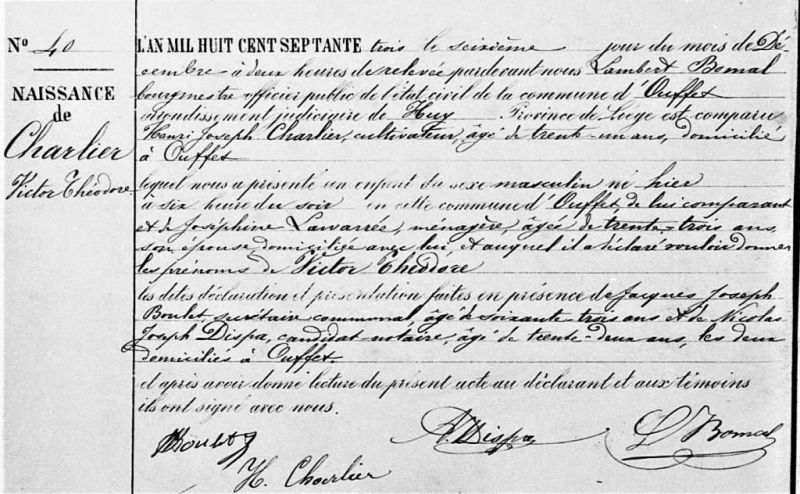 N° 40
NAISSANCE
de
Charlier
Victor Théodore
L'AN MIL HUIT CENT SEPTANTE trois le seizième jour du mois de Dé-
cembre à deux heures de relevée pardevant nous Lambert Bomal
bourgmestre officier public de l'état civil de la commune d'Ouffet
arrondissement judiciaire de Huy Province de Liège est comparu
Henri Joseph Charlier, cultivateur, âgé de trente-un ans, domicilié
à Ouffet
lequel nous a présenté un enfant du sexe masculin né hier
à six heure du soir en cette commune d'Ouffet, de lui comparant
et de Joséphine Lawarrée, ménagère, âgée de trente-trois ans
son épouse domiciliée avec lui, et auquel il a déclaré vouloir donner
les prénoms de Victor Théodore
les dites déclaration et présentation faites en présence de Jacques Joseph
Boulet secrétaire communal, âgé de soixante-trois ans et de Nicolas
Joseph Dispa, candidat-notaire, âgé de trente-deux ans, les deux
domiciliés à Ouffet.
et après avoir donné lecture du présent acte au déclarant et aux témoins
ils ont signé avec nous.
Boulet
Dispa
L Bomal
H. Charlier